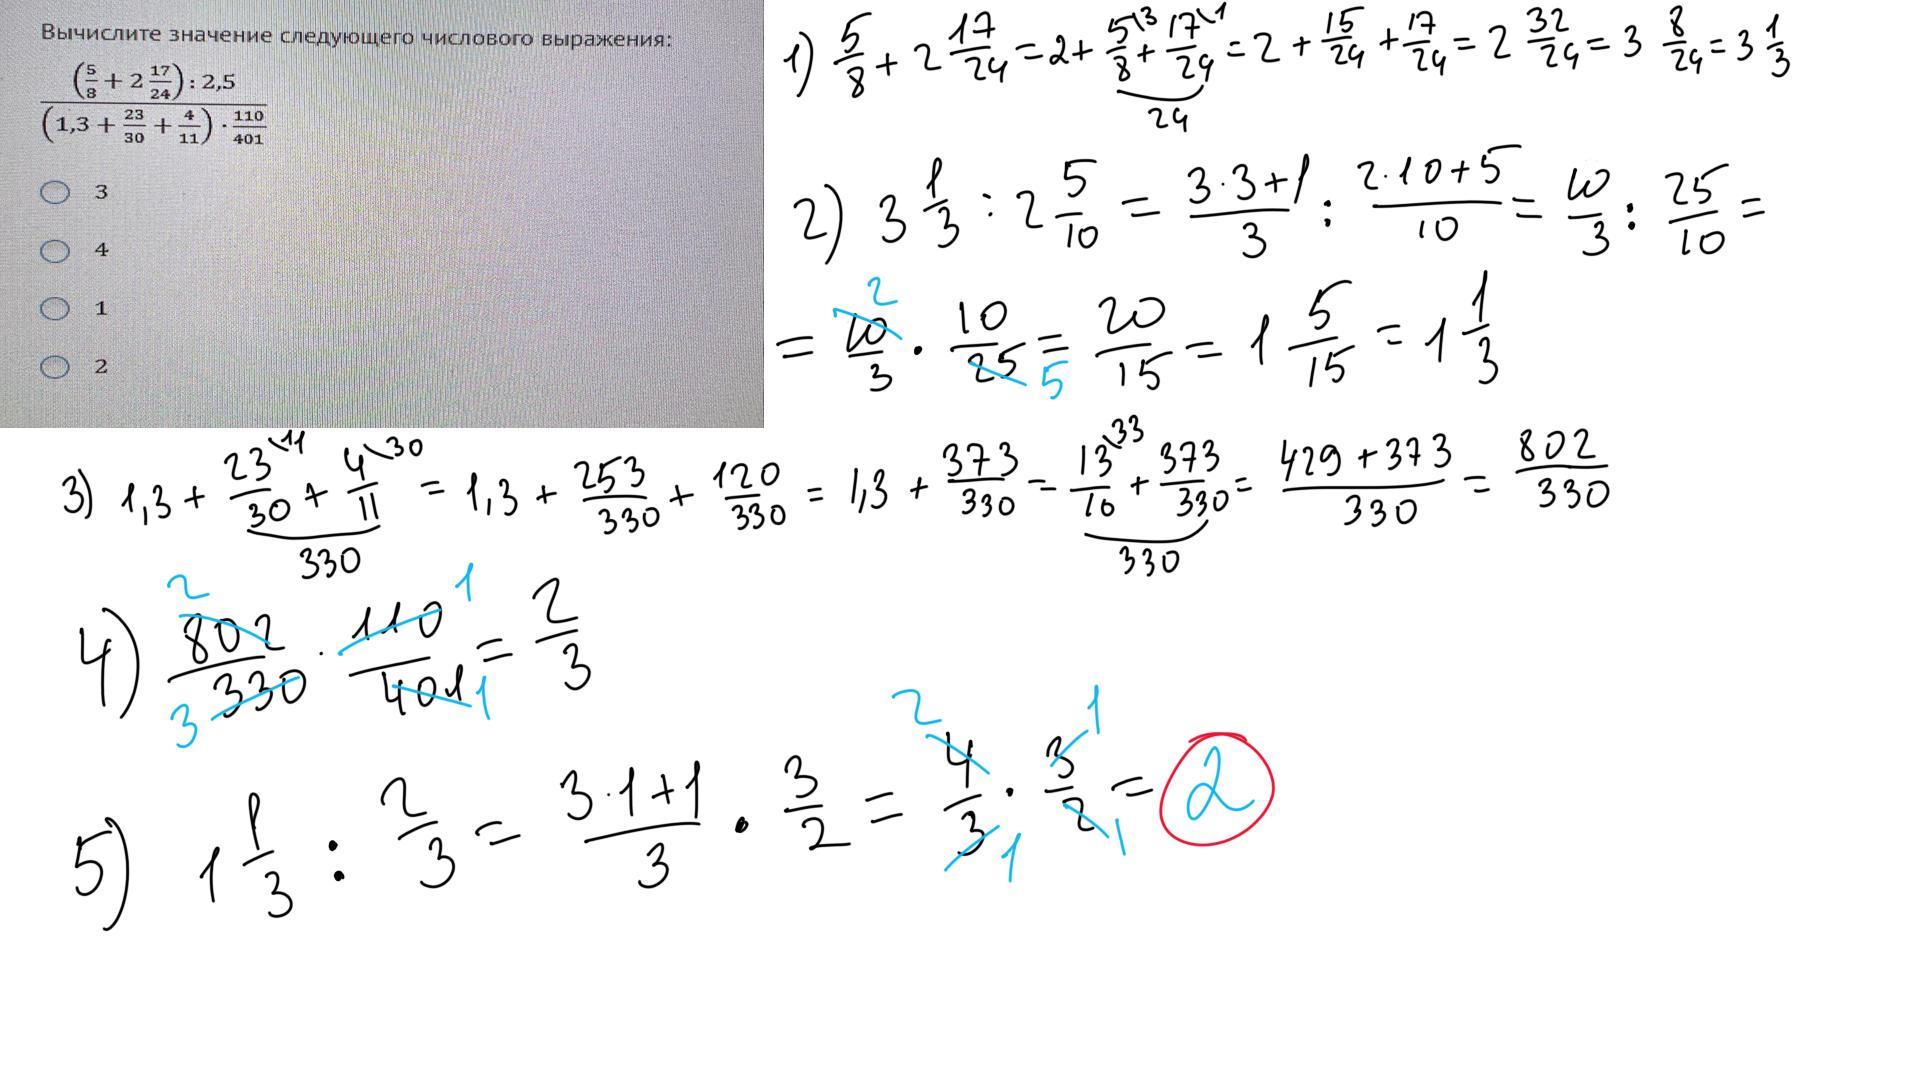 Вычислите значение следующего числового выражения:
(5/8 + 2 17/24) : 2,5
(1,3 + 23/30 + 4/11) · 110/401
3
4
1
2
1) 5/8 + 2 17/24 = 2 + 5\3/8 + 17\1/24 = 2 + 15/24 + 17/24 = 2 32/24 = 3 8/24 = 3 1/3
24
2) 3 1/3 : 2 5/10 = 3·3+1/3 : 2·10+5/10 = 10/3 : 25/10 =
2
= 10/3 · 10/25 = 20/15 = 1 5/15 = 1 1/3
5
3) 1,3 + 23\11/30 + 4\30/11 = 1,3 + 253/330 + 120/330 = 1,3 + 373/330 = 13\33/10 + 373/330 = 429+373/330 = 802/330
330 330
2 1
4) 802/330 · 110/401 = 2/3
3 1
2 1
5) 1 1/3 : 2/3 = 3·1+1/3 · 3/2 = 4/3 · 3/2 = 2
1 1